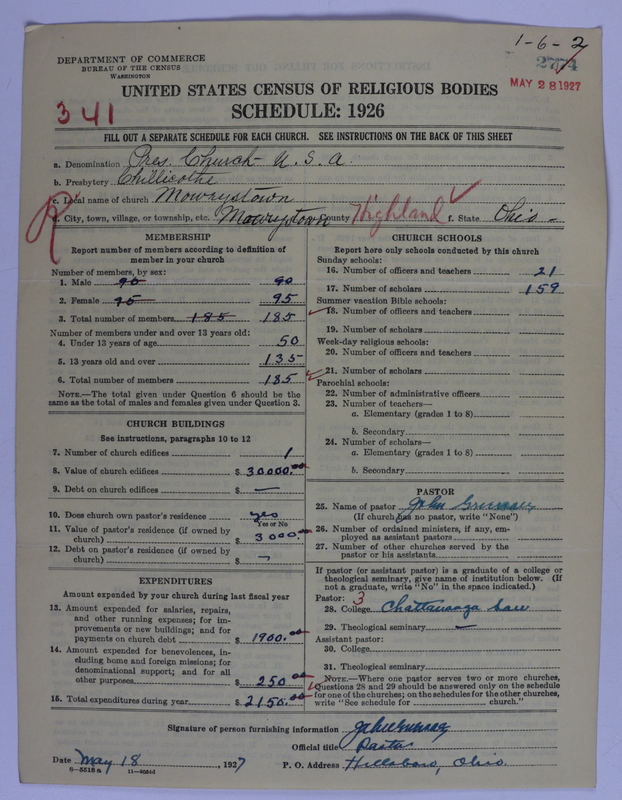 1-6-2
2774
MAY 28 1927
DEPARTMENT OF COMMERCE
BUREAU OF THE CENSUS
WASHINGTON
341
UNITED STATES CENSUS OF RELIGIOUS BODIES
SCHEDULE: 1926
FILL OUT A SEPARATE SCHEDULE FOR EACH CHURCH. SEE INSTRUCTIONS ON THE BACK OF THIS SHEET
a. Denomination Pres. Church U.S.A.
b. Presbytery Chillicothe
c. Local name of church Mowrystown
d. City, town, village, or township, etc. Mowrystown County Highland f. State Ohio
R
MEMBERSHIP
Report number of members according to definition of
member in your church
Number of members, by sex:
1. Male 90 90
2. Female 95 95
3. Total number of members 185 185
Number of members under and over 13 years old:
4. Under 13 years of age 50
5. 13 years old and over 135
6. Total number of members 185
NOTE.—The total given under Question 6 should be
same as the total of males and females given under Question 3.
CHURCH BUILDINGS
See instructions, paragraphs 10 to 12
7. Number of church edifices 1
8. Value of church edifices $ 30000.00
9. Debt on church edifices $ —
10. Does church own pastor's residence yes
Yes or No
11. Value of pastor's residence (if owned by
church) $ 3000.00
12. Debt on pastor's residence (if owned by
church) $ —
EXPENDITURES
Amount expended by your church during last fiscal year
13. Amount expended for salaries, repairs,
and other running expenses; for im-
provements or new buildings; and for
payments on church debt $ 1900.00
14. Amount expended for benevolences, in-
cluding home and foreign missions; for
denominational support; and for all
other purposes $ 250.00
15. Total expenditures during year $ 2150.00
CHURCH SCHOOLS
Report here only schools conducted by this church
Sunday schools:
16. Number of officers and teachers 21
17. Number of scholars 159
Summer vacation Bible schools:
18. Number of officers and teachers
19. Number of scholars
Week-day religious schools:
20. Number of officers and teachers
21. Number of scholars
Parochial schools:
22. Number of administrative officers
23. Number of teachers—
a. Elementary (grades 1 to 8)
b. Secondary
24. Number of scholars—
a. Elementary (grades 1 to 8)
b. Secondary
PASTOR
25. Name of pastor John
(If church has no pastor, write "None")
26. Number of ordained ministers, if any, em-
ployed as assistant pastors
27. Number of other churches served by the
pastor or his assistants
If pastor (or assistant pastor) is a graduate of a college or
theological seminary, give name of institution below. (If
not a graduate, write "No" in the space indicated.)
Pastor: 3
28. College Chattanooga
29. Theological seminary —
Assistant pastor:
30. College
31. Theological seminary
NOTE.—Where one pastor serves two or more churches,
Questions 28 and 29 should be answered only on the schedule
for one of the churches; on the schedules for the other churches,
write "See schedule for church."
Signature of person furnishing information
Official title Pastor
Date May 18, 1927 P. O. Address Hillsboro, Ohio.